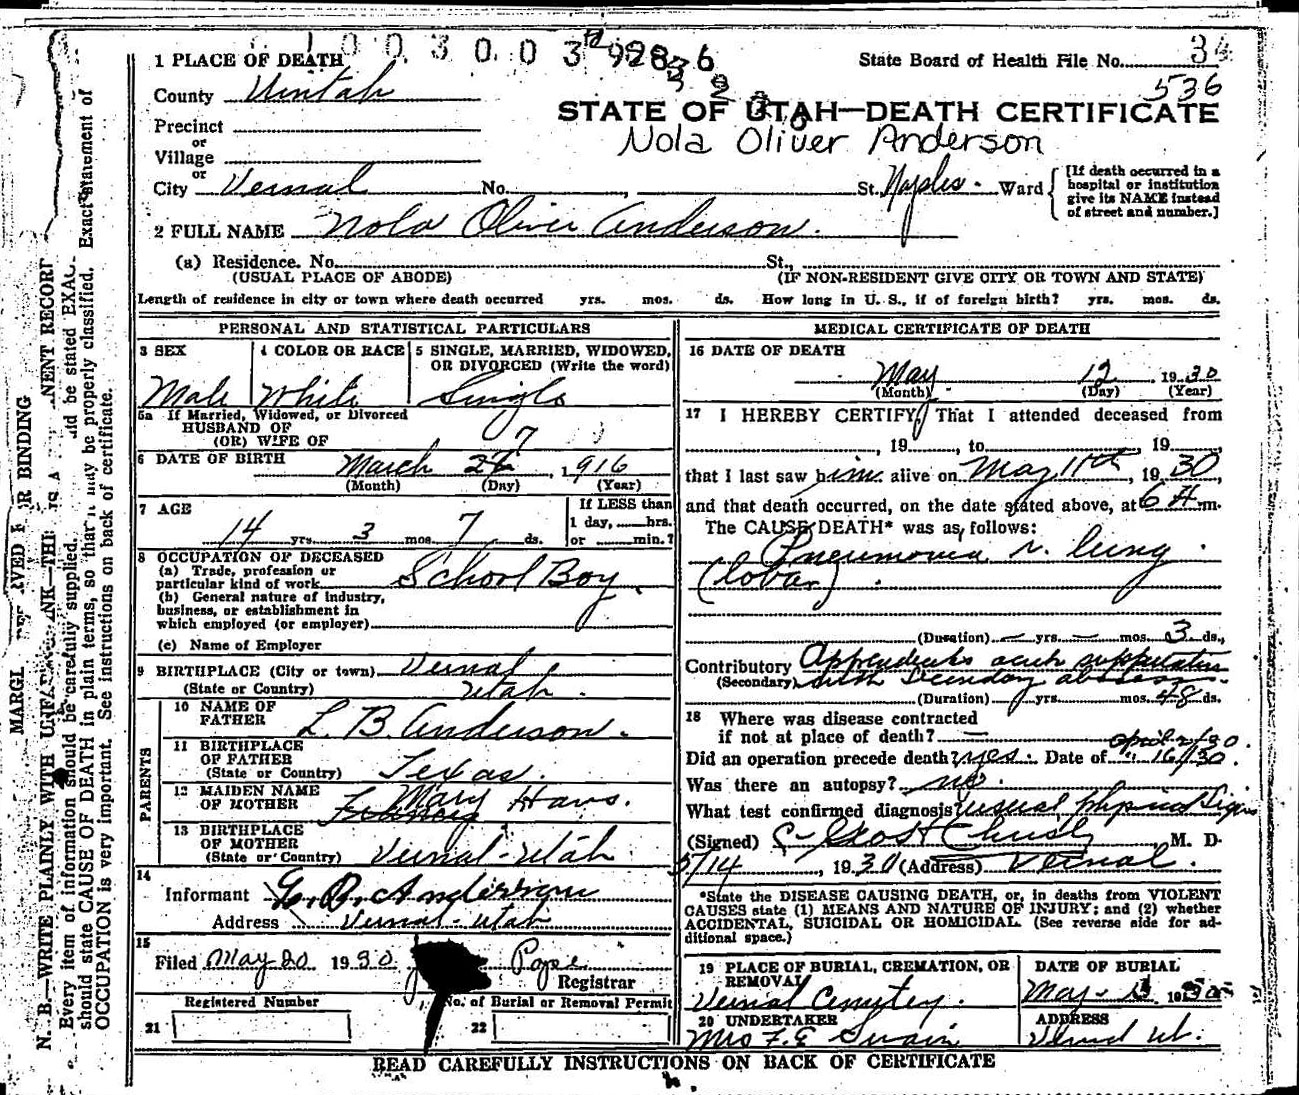 1 0 0 3 0 0 3
State Board of Health File No. 34
536
1 PLACE OF DEATH
County Uintah
STATE OF UTAH—DEATH CERTIFICATE
Precinct
or
Village
Nola Oliver Anderson
or
City Vernal No. , St. Naples Ward
[If death occurred in a hospital or institution give its NAME instead of street and number.]
2 FULL NAME Nola Oliver Anderson.
(a) Residence. No. St.,
(USUAL PLACE OF ABODE) (IF NON-RESIDENT GIVE CITY OR TOWN AND STATE)
Length of residence in city or town where death occurred yrs. mos. ds. How long in U. S., if of foreign birth? yrs. mos. ds.
PERSONAL AND STATISTICAL PARTICULARS
3 SEX
Male
4 COLOR OR RACE
White
5 SINGLE, MARRIED, WIDOWED, OR DIVORCED (Write the word)
Single
5a If Married, Widowed, or Divorced
HUSBAND OF
(OR) WIFE OF
6 DATE OF BIRTH March 7, 1916
(Month) (Day) (Year)
7 AGE
14 yrs. 3 mos. 7 ds.
If LESS than
1 day, hrs.
or min.?
8 OCCUPATION OF DECEASED
(a) Trade, profession or
particular kind of work School Boy.
(b) General nature of industry,
business, or establishment in
which employed (or employer)
(c) Name of Employer
9 BIRTHPLACE (City or town) Vernal
(State or Country) Utah.
PARENTS
10 NAME OF
FATHER L. B. Anderson.
11 BIRTHPLACE
OF FATHER
(State or Country) Texas.
12 MAIDEN NAME
OF MOTHER Mary Haws.
13 BIRTHPLACE
OF MOTHER
(State or Country) Vernal-Utah
14
Informant L. B. Anderson
Address Vernal-Utah
15
Filed May 20 1930 Pope
Registrar
Registered Number No. of Burial or Removal Permit
21 22
MEDICAL CERTIFICATE OF DEATH
16 DATE OF DEATH
May 12, 1930
(Month) (Day) (Year)
17 I HEREBY CERTIFY, That I attended deceased from
, 19 , to , 19
that I last saw him alive on May 11th, 1930
and that death occurred, on the date stated above, at 6 A.m.
The CAUSE DEATH* was as follows:
Pneumonia r. lung
(lobar)
(Duration) — yrs. — mos. 3 ds.
Contributory Appendicitis acute suppurative
(Secondary) with secondary abscess.
(Duration) yrs. mos. 48 ds.
18 Where was disease contracted
if not at place of death? —
Did an operation precede death? yes. Date of " 16/30.
Was there an autopsy? no.
What test confirmed diagnosis? usual physical signs
(Signed) M. D.
5/14, 1930 (Address) Vernal.
*State the DISEASE CAUSING DEATH, or, in deaths from VIOLENT
CAUSES state (1) MEANS AND NATURE OF INJURY; and (2) whether
ACCIDENTAL, SUICIDAL OR HOMICIDAL. (See reverse side for ad-
ditional space.)
19 PLACE OF BURIAL, CREMATION, OR
REMOVAL
Vernal Cemetery.
DATE OF BURIAL
20 UNDERTAKER
Mrs F. E. Swain
ADDRESS
Vernal Ut.
READ CAREFULLY INSTRUCTIONS ON BACK OF CERTIFICATE
N. B.—WRITE PLAINLY WITH
Every item of information should be carefully supplied.
should state CAUSE OF DEATH in plain terms, so that it may be properly classified. Exact statement of
OCCUPATION is very important. See instructions on back of certificate.